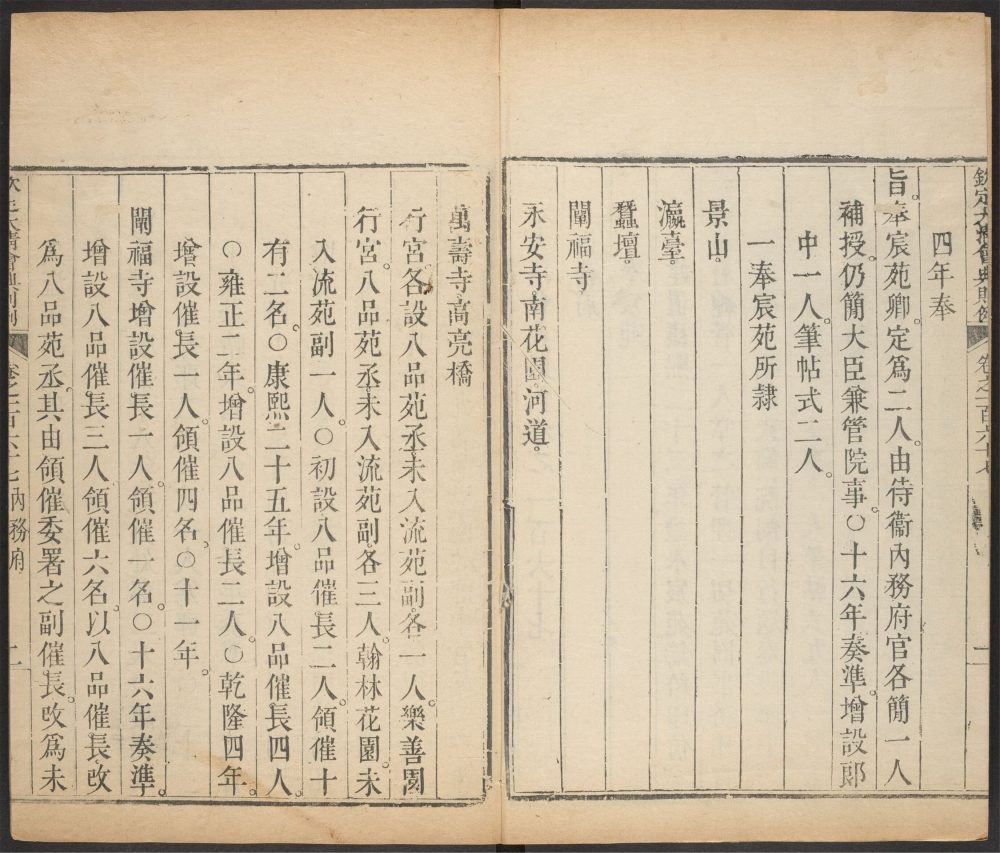 欽定大清會典則例 卷之一百六十七 一
四年奉
旨。奉宸苑卿。定爲二人。由侍衞內務府官各簡一人
補授。仍簡大臣兼管院事。〇十六年奏準增設郞
中一人。筆帖式二人。
一奉宸苑所隸
景山。
瀛臺。
蠶壇。
闡福寺。
永安寺。南花園。河道。
萬壽寺。高亮橋
行宮。各設八品苑丞。未入流苑副。各一人。樂善園
行宮。八品苑丞。未入流苑副。各三人。翰林花園。未
入流苑副一人。〇初設八品催長二人。領催十
有二名。〇康熙二十五年。增設八品催長四人。
〇雍正二年。增設八品催長二人。〇乾隆四年。
增設催長一人。領催四名。〇十一年。
闡福寺增設催長一人。領催一名。〇十六年奏準。
增設八品催長三人。領催六名。以八品催長改
爲八品苑丞。其由領催委署之副催長。改爲未
欽定大清會典則例 卷之一百六十七 內務府 二